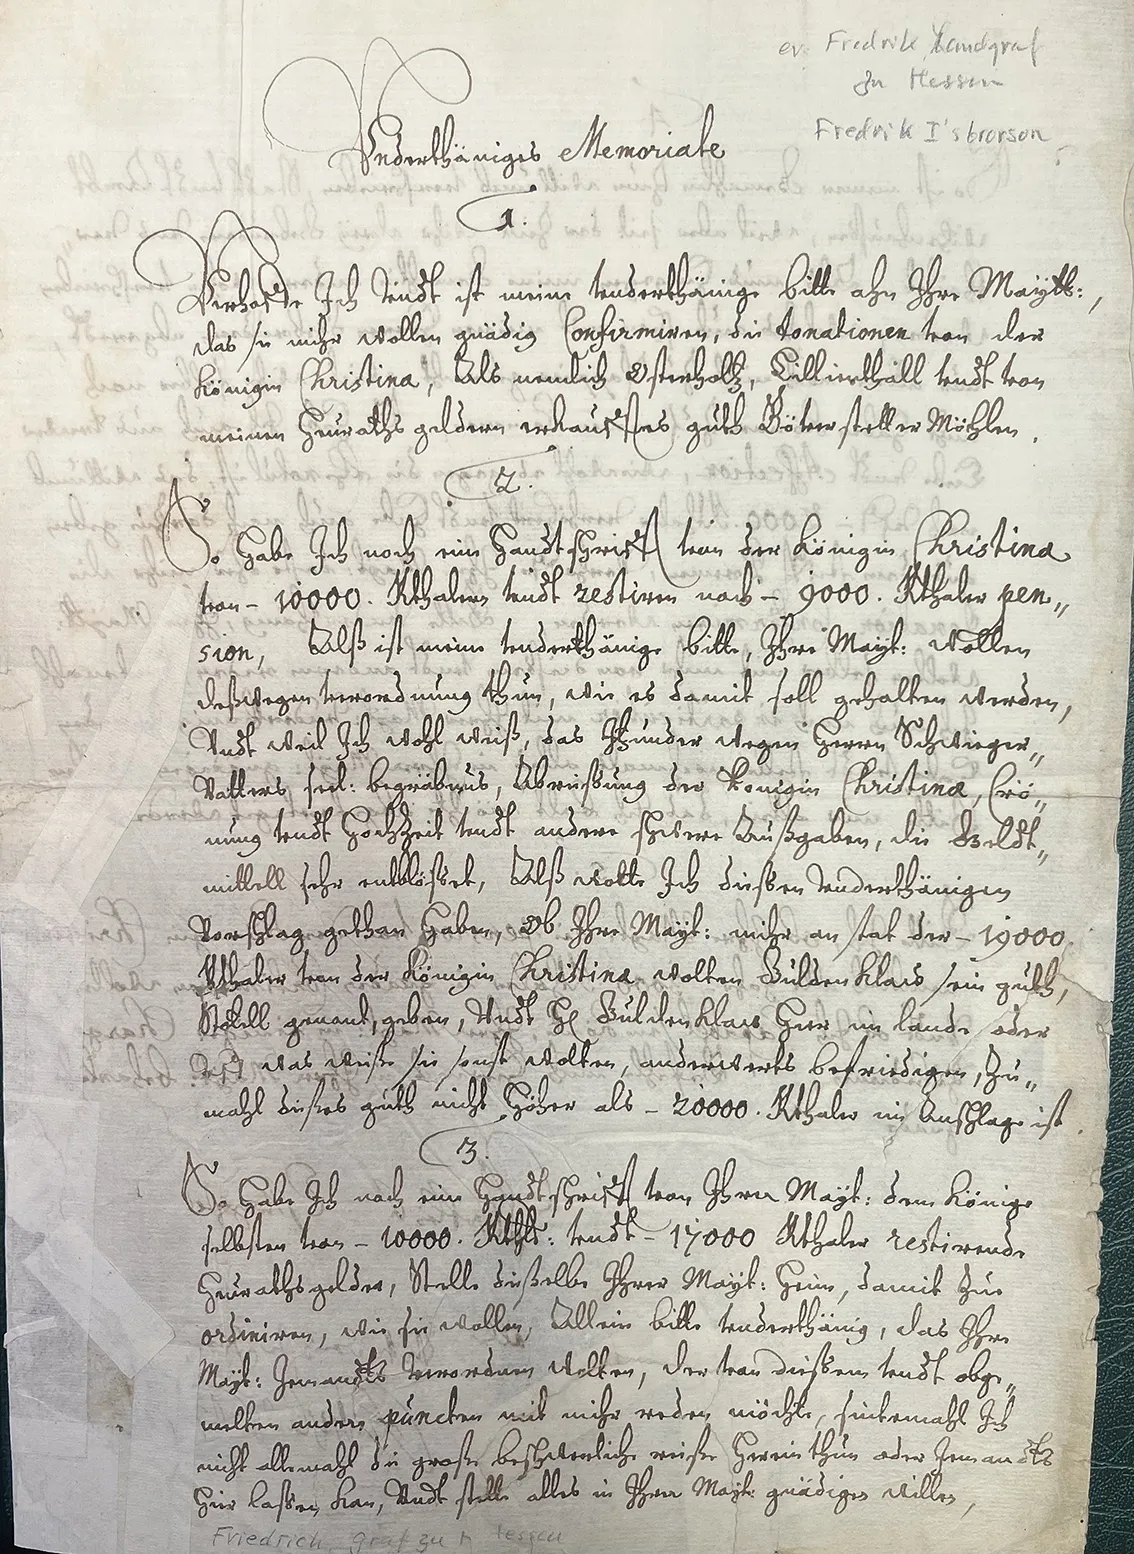 ev. Fredrik Landgraf
zu Hessen
Fredrik I's brorson
Underthäniges Memoriale
1.
Verhoffe Ich Undt ist meine underthänige bitte ahn Ihre Maytt:,
das sie mihr wollen gnädig Confirmiren, die donationen von der
Königin Christina, Als nemlich Osterholtz, Lillierthall undt von
meinen Heuraths geldern erkaufftes guth Böterstetter Möhlen.
2.
So habe Ich noch eine Handtschrifft von der Königin Christina
von – 10000. Rthalern undt restiren noch – 9000. Rthaler pen„
sion, Alß ist meine underthänige bitte, Ihre Mayt: wollen
deßwegen verordnung thun, wie es damit soll gehalten werden,
Undt weil Ich wohl weiß, das Itzunder wegen Herrn Schwieger„
Vatters seel: begräbnus, Abreißung der Königin Christina, Crö„
nung undt Hochzeit undt andere schwere Außgaben, die Geldt„
mittell sehr entblösset, Alß wolte Ich diessen underthänigen
Vorschlag gethan haben, Ob Ihre Mayt: mihr an stat der – 19000.
Rthaler von der Königin Christina wolten Guldenklaw sein guth,
genant, geben, Undt H. Guldenklaw hier im lande oder
auff was weiße sie sonst wolten, anderwerts befriedigen, Zu„
mahl dieses guth nicht höher als – 20000. Rthaler im Anschlage ist.
3.
So habe Ich noch eine Handtschrifft von Ihrer Mayt: dem Könige
selbsten von – 10000. Rthlr: undt – 17000 Rthaler restirende
Heurathsgelder, Stelle dießelbe Ihrer Mayt: heim, damit Zue
ordiniren, wie sie wollen, Allein bitte underthänig, das Ihre
Mayt: Jemandts verordnen wolten, der von diessem undt obge„
melten andern puncten mit mihr reden möchte, sintemahl Ich
nicht allemahl die große beschwerliche reiße herein thun oder Jemandts
hier lassen kan, Undt stelle alles in Ihrer Mayt: gnädigen willen,
Friedrich, graf zu Hessen